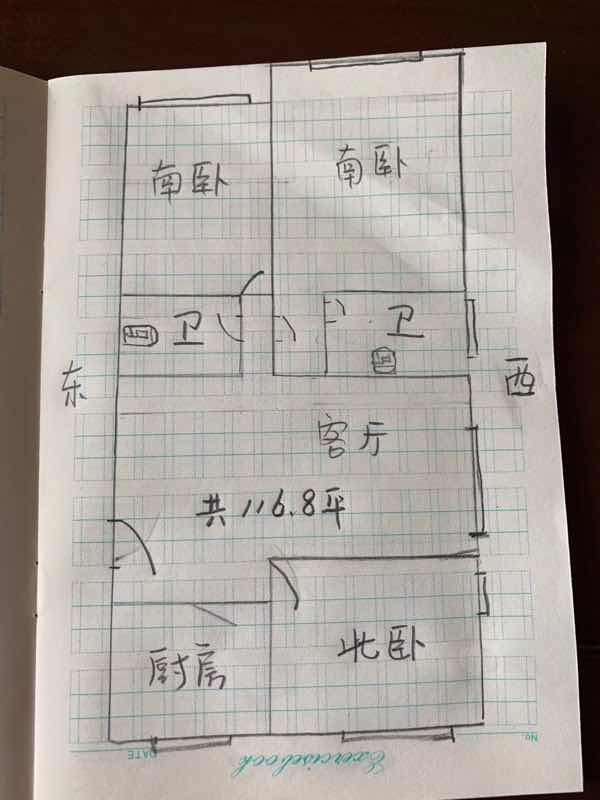 南卧
南卧
卫
卫
东
西
客厅
共116.8平
厨房
北卧
DATE
Exercisebook
No.